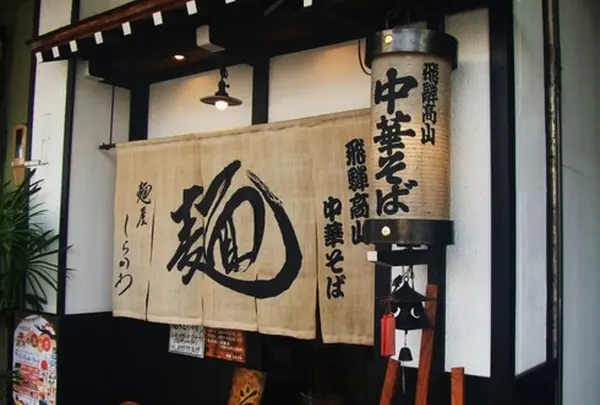 飛騨高山
中華そば
飛騨高山
中華そば
麺
麺屋
しらかわ